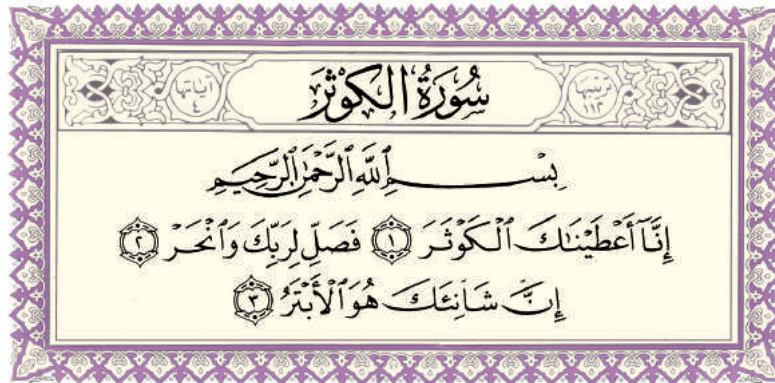 ترتيبها ١١٣ سُورَةُ الكَوْثَر آياتها ٤
بِسْمِ ٱللَّهِ ٱلرَّحْمَٰنِ ٱلرَّحِيمِ
إِنَّآ أَعْطَيْنَٰكَ ٱلْكَوْثَرَ ١ فَصَلِّ لِرَبِّكَ وَٱنْحَرْ ٢
إِنَّ شَانِئَكَ هُوَ ٱلْأَبْتَرُ ٣